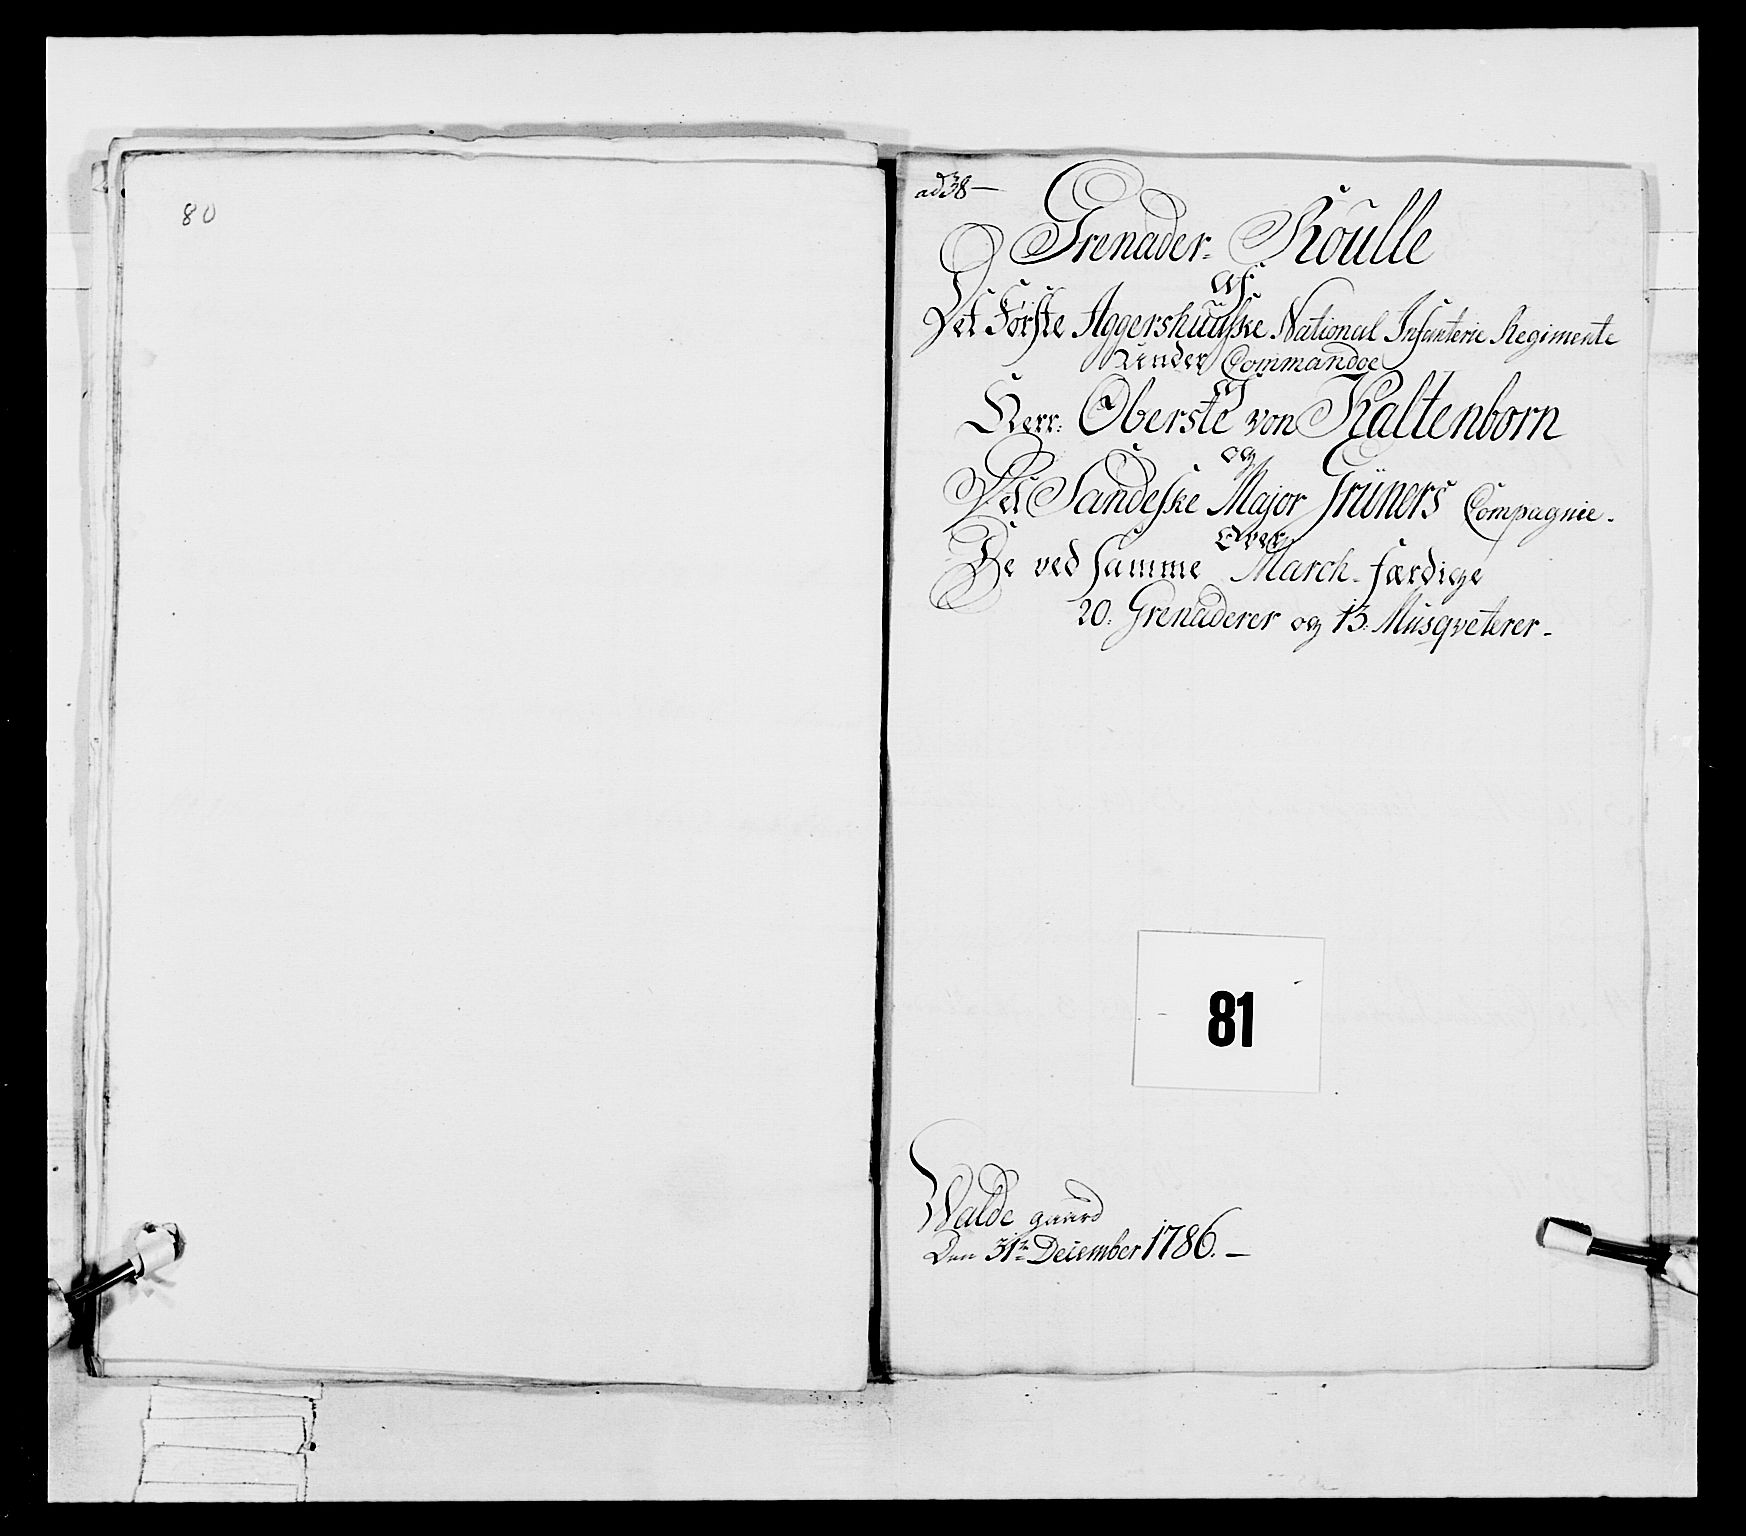 80
ad 38 —
Grenader- Roulle
af
Det Førſte Aggershuuſke National Infanterie Regimente
Under Commandoe
af
Herr: Oberste von Kaltenborn
og
Det Sandeſke Major Grüners Compagnie.
Over
De ved ſamme March-færdige
20. Grenaderer og 13. Musqveterer.
81
Walde gaard
Den 31te December 1786. —